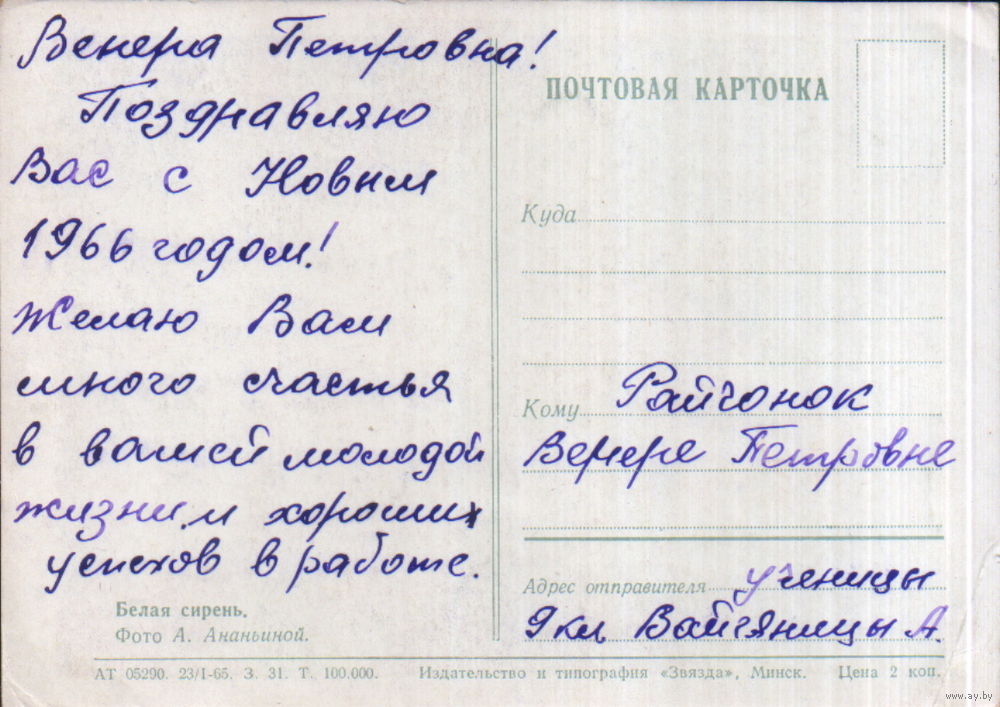 Венера Петровна!
Поздравляю
Вас с Новым
1966 годом!
Желаю Вам
много счастья
в вашей молодой
жизни и хороших
успехов в работе.
Белая сирень.
Фото А. Ананьиной.
ПОЧТОВАЯ КАРТОЧКА
Куда
Кому Райчонок
Венере Петровне
Адрес отправителя ученицы
9 кл Войтяницы А.
АТ 05290. 23/I-65. З. 31. Т. 100.000. Издательство и типография «Звязда», Минск. Цена 2 коп.
www.ay.by